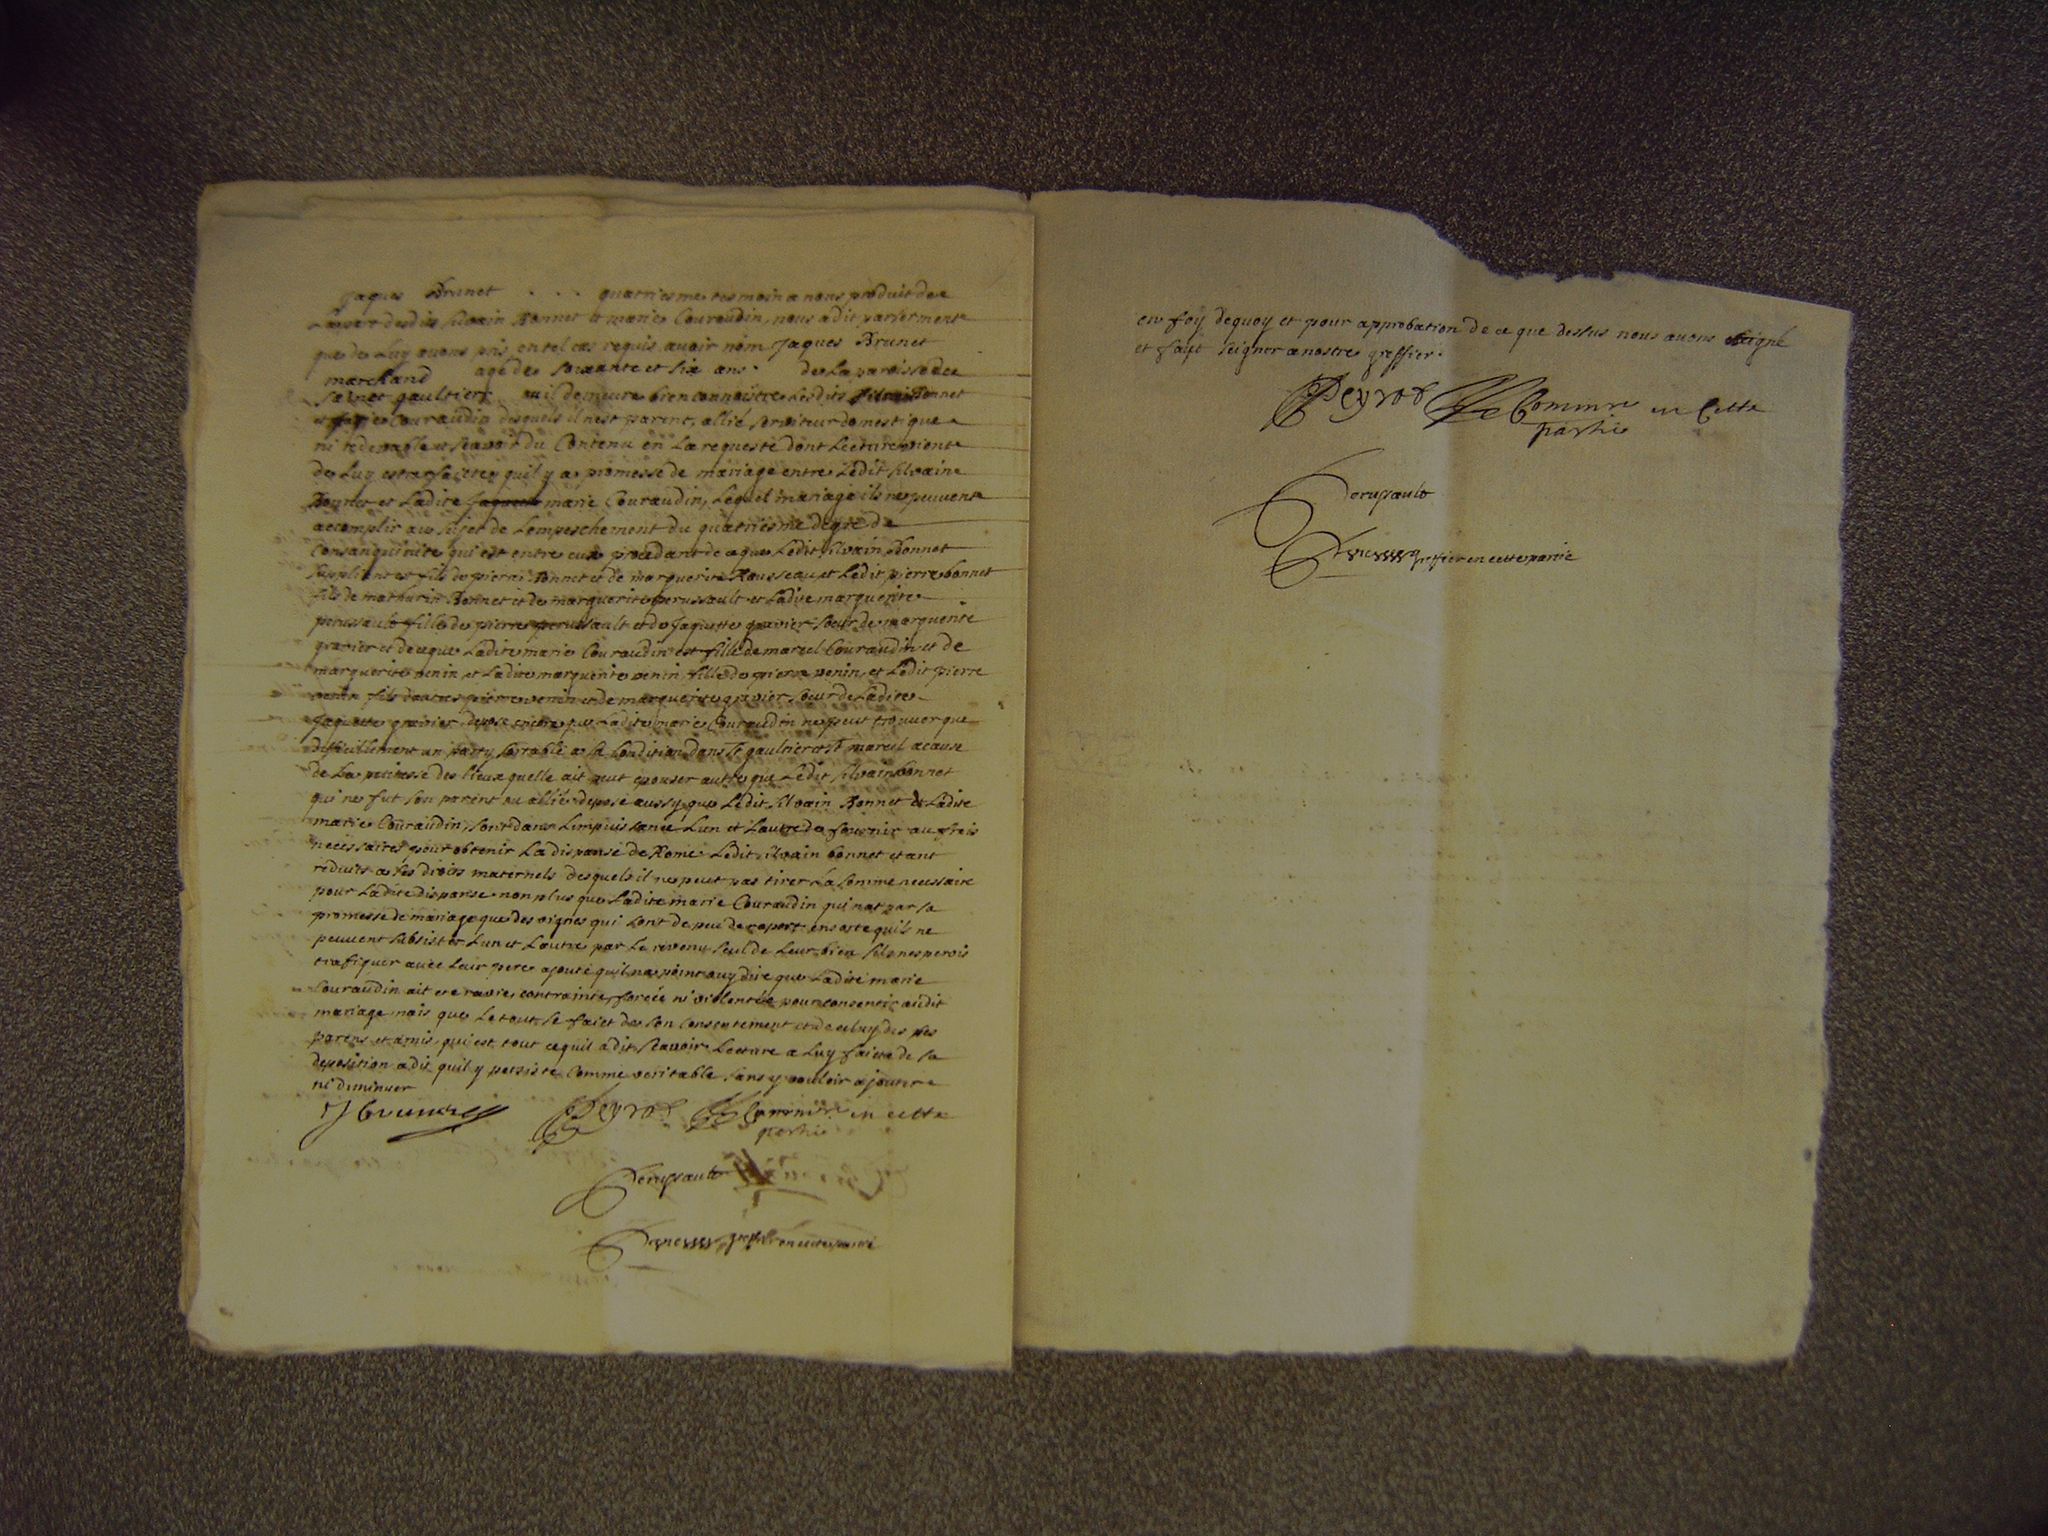 Jaques Brunet . . . quatriesme tesmoin a nous produit de
la part desdits silvain Bonnet & marie Couraudin, nous a dit par serment
que de Luy avons pris en tel cas requis avoir nom Jaques Brunet
marchand agé de soixante et six ans . de La paroisse de
saint gaultier, ou il demeure bien connoistre Lesdits silvain Bonnet
et marie Couraudin desquels il n'est parent, allié serviteur domestique
ni redevable et scavoir du Contenu en La requeste dont Lecture vient
de Luy estre faicte, quil y a promesse de mariage entre Ledit silvain
Bonnet et Ladite marie Couraudin, Lequel mariage ils ne peuvent
accomplir au sujet de Lempeschement du quatriesme degré de
Consanguinité qui est entre eux procedant de ce que Ledit silvain Bonnet
suppliant est fils de pierre Bonnet et de marguerite Rousseau et Ledit pierre bonnet
fils de mathurin Bonnet et de marguerite perussault et Ladite marguerite
perussault fille de pierre perussault et de Jaquette gravier soeur de marguerite
gravier et de ce que Ladite marie Couraudin est fille de marcel Couraudin et de
marguerite venin et Ladite marguerite venin fille de pierre venin, et Ledit pierre
venin fils dautre pierre venin et de marguerite gravier, soeur de Ladite
Jaquette gravier, depose encore que Ladite marie Couraudin ne peut trouver que
difficillement un party sortable a sa Condition dans St gaultier et St marcel a cause
de La petitesse des lieux quelle ait peut epouser autre que Ledit silvain bonnet
qui ne fut son parent ou allié, depose aussy que Ledit silvain Bonnet & Ladite
marie Couraudin, sont dans Limpuissance Lun et Lautre de fournir au frais
necessaires pour obtenir La dispanse de Rome Ledit silvain bonnet etant
reduits a ses droits maternels desquels il ne peut pas tirer La somme necessaire
pour Ladite dispanse non plus que Ladite marie Couraudin qui nat par sa
promesse de mariage que des vignes qui sont de peu de raport en sorte quils ne
peuvent subsister Lun et Lautre par Le revenu seul de Leur bien
trafiquer avec Leur pere ajoute quil na point ouy dire que Ladite marie
Couraudin ait ete ravie, contrainte, forcée ni violentée pour consentir audit
mariage mais que Le tout se faict de son Consentement et de celuy de ses
parens et amis, qui est tout ce quil a dit scavoir Lecture a Luy faicte de sa
deposition a dit quil y persiste Comme veritable sans y vouloir ajouter
ni diminuer
J Brunet Peyrot Commre en cette
partie
Perussault
greffier en cette partie
en foy dequoy et pour approbation de ce que dessus nous avons signé
et fayt seigner a nostre greffier.
Peyrot Commre en Cette
partie
Perussault
greffier en cette partie